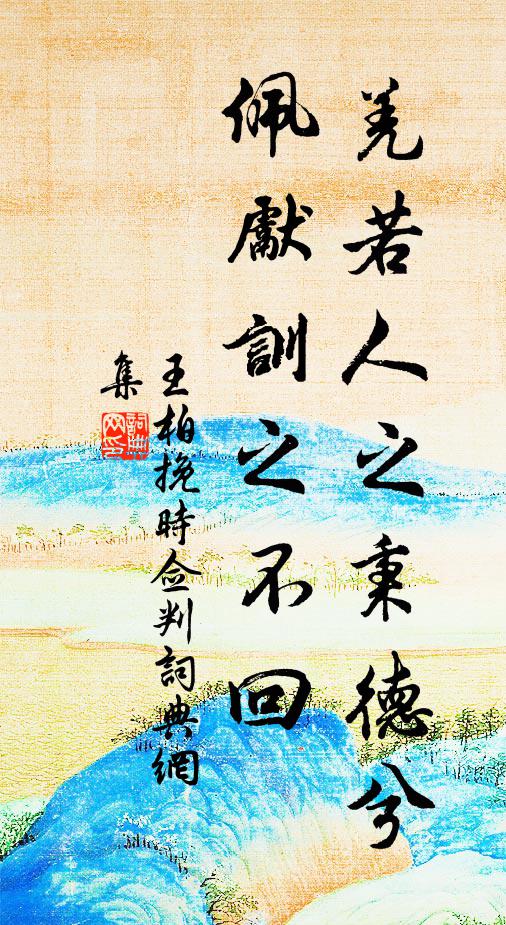 羌若人之秉德兮
佩獻訓之不回
王柏挽時僉判詞典網
集
詞典網印